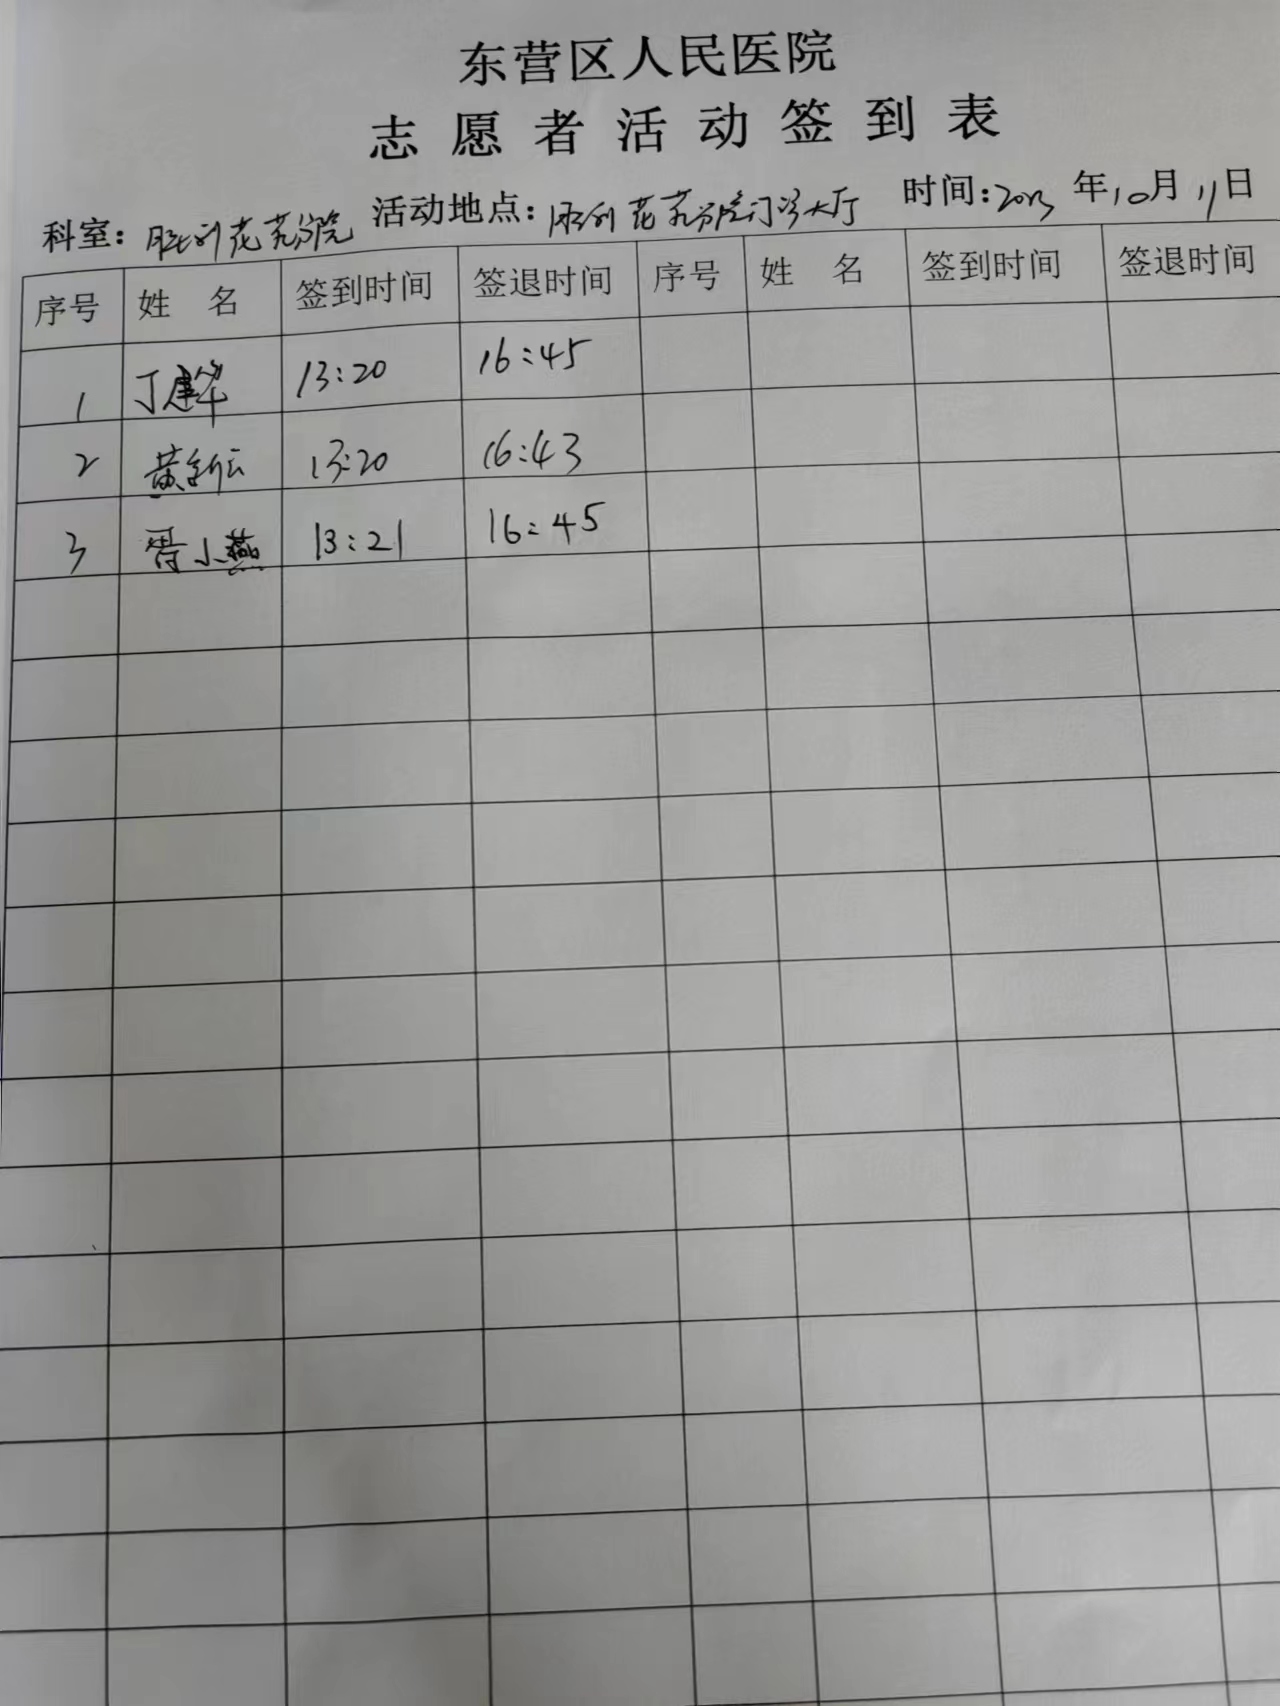 东营区人民医院
志愿者活动签到表
科室：胜利花苑分院 活动地点：胜利花苑分院门诊大厅 时间：2023年10月11日
序号 姓名 签到时间 签退时间 序号 姓名 签到时间 签退时间
1 丁建华 13:20 16:45
2 黄 13:20 16:43
3 胥小燕 13:21 16:45